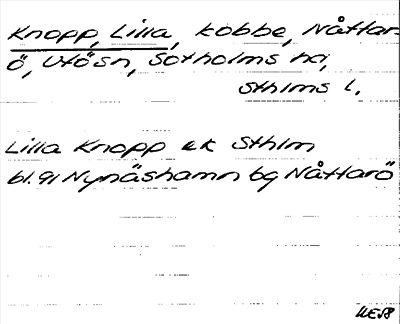 Knopp, Lilla, kobbe, Nåttar-
ö, Utösn, Sotholms hd,
Sthlms l.
Lilla Knopp ek Sthlm
bl. 91 Nynäshamn bg Nåttarö